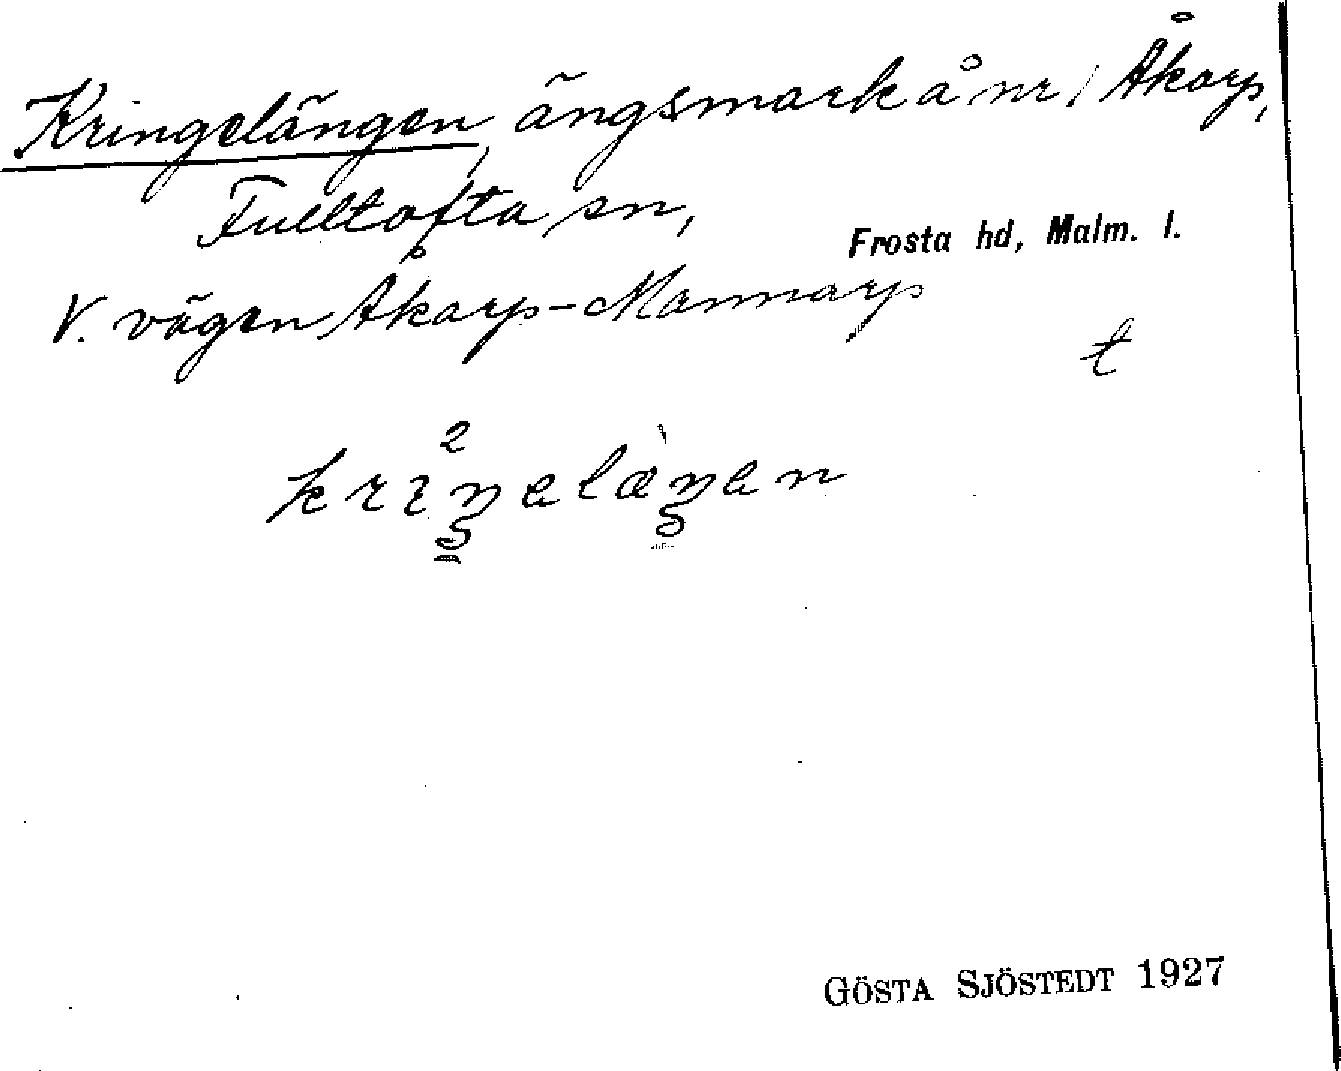 Kringelängen, ängsmark å nr 1 Åkarp,
Fulltofta sn,
Frosta hd, Malm. l.
V. vägen Åkarp-Mannarp
t
GÖSTA SJÖSTEDT 1927